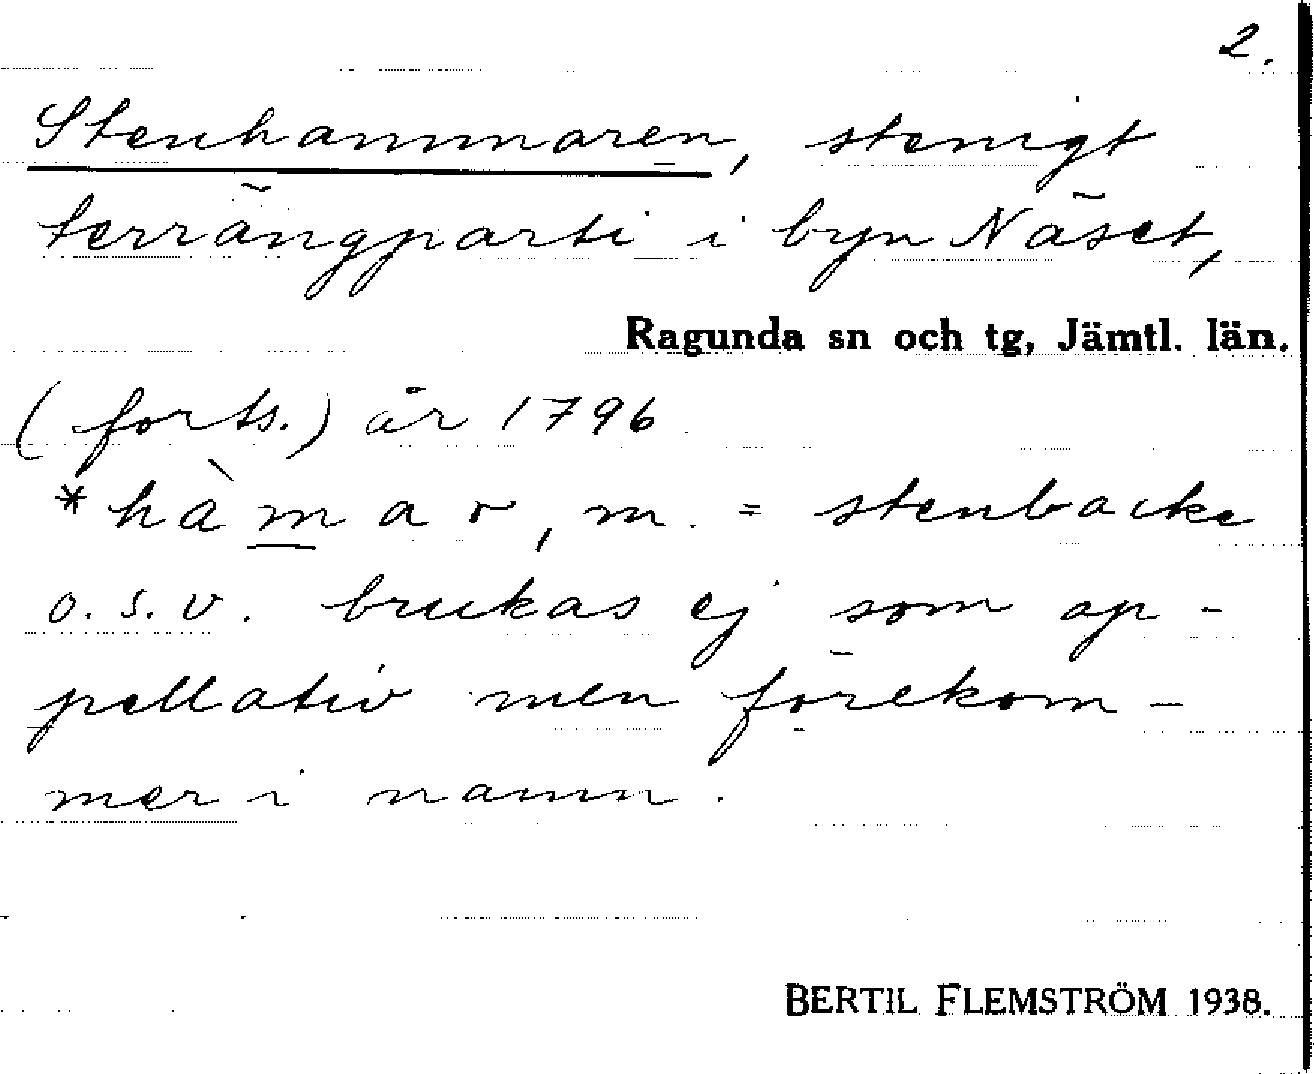 2.
Stenhammaren, stenigt
terrängparti i byn Näset,
Ragunda sn och tg, Jämtl. län.
(forts.) år 1796
*hàm̲ar, m. = stenbacke
o.s.v. brukas ej som ap-
pellativ men förekom-
mer i namn.
BERTIL FLEMSTRÖM 1938.